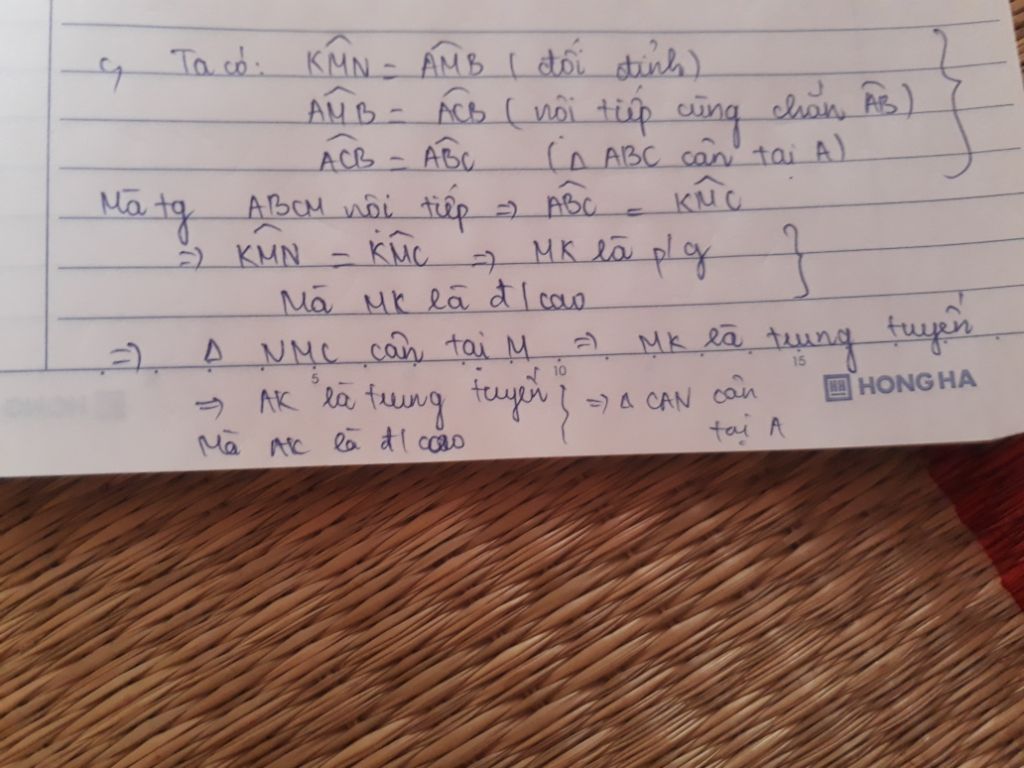 c, Ta có: KMN = AMB (đối đỉnh)
AMB = ACB (nội tiếp cùng chắn AB)
ACB = ABC (Δ ABC cân tại A)
Mà tg ABCM nội tiếp => ABC = KMC
=> KMN = KMC => MK là p/g
Mà MK là đ/cao
=> Δ NMC cân tại M => MK là trung tuyến
5 10 15
HONG HA
=> AK là trung tuyến => Δ CAN cân
Mà AK là đ/cao tại A